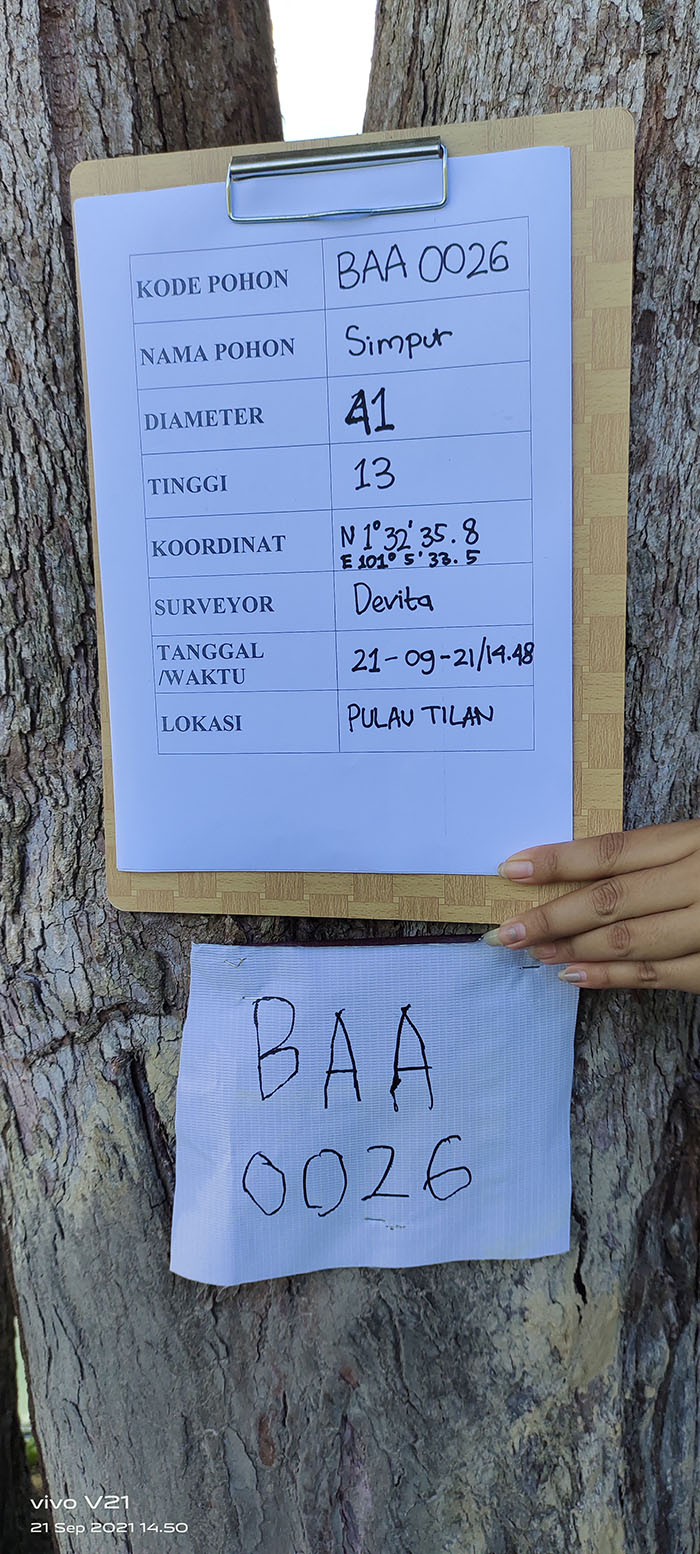 KODE POHON BAA 0026
NAMA POHON Simpur
DIAMETER 41
TINGGI 13
KOORDINAT N 1° 32' 35.8
E 101° 5' 33.5
SURVEYOR Devita
TANGGAL
/WAKTU 21-09-21/14.48
LOKASI PULAU TILAN
BAA
0026
vivo V21
21 Sep 2021 14.50